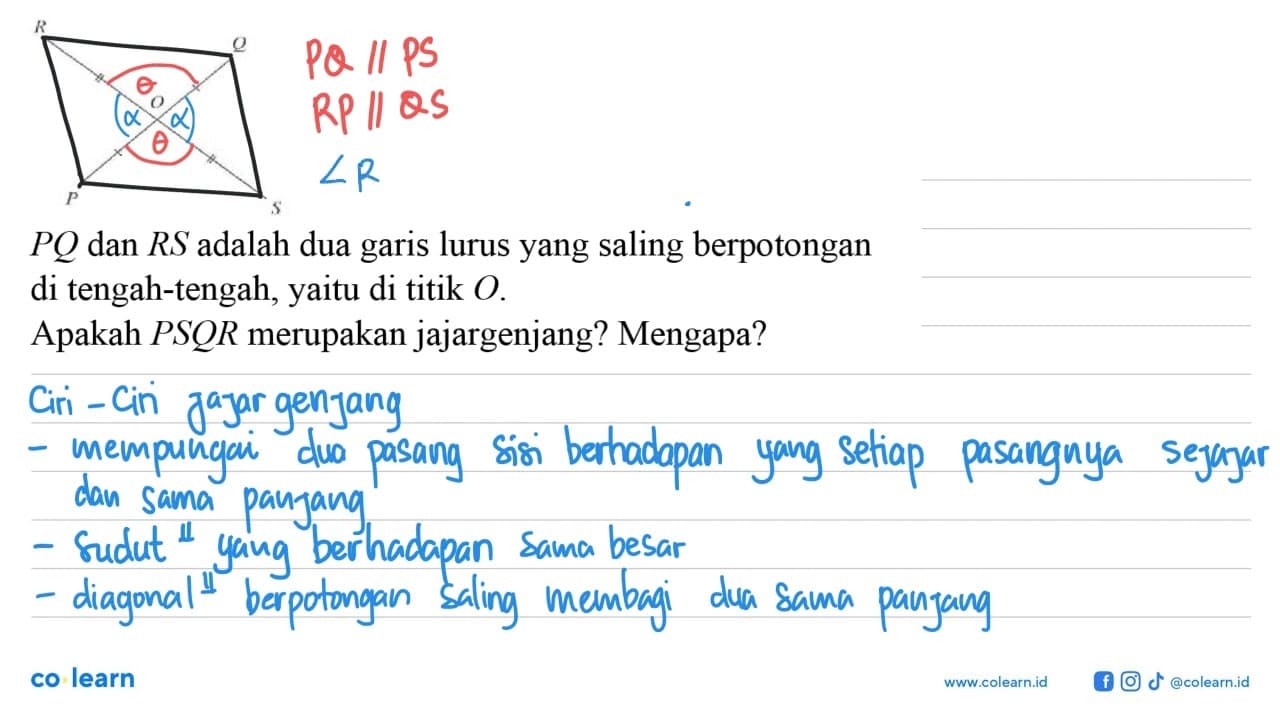 R
Q
PQ // PS
θ
O
RP // QS
α α
θ
∠R
P
S
PQ dan RS adalah dua garis lurus yang saling berpotongan
di tengah-tengah, yaitu di titik O.
Apakah PSQR merupakan jajargenjang? Mengapa?
Ciri - Ciri jajar genjang
- mempunyai dua pasang sisi berhadapan yang setiap pasangnya sejajar
dan sama panjang
- Sudut" yang berhadapan sama besar
- diagonal" berpotongan saling membagi dua sama panjang
co learn
www.colearn.id
@colearn.id